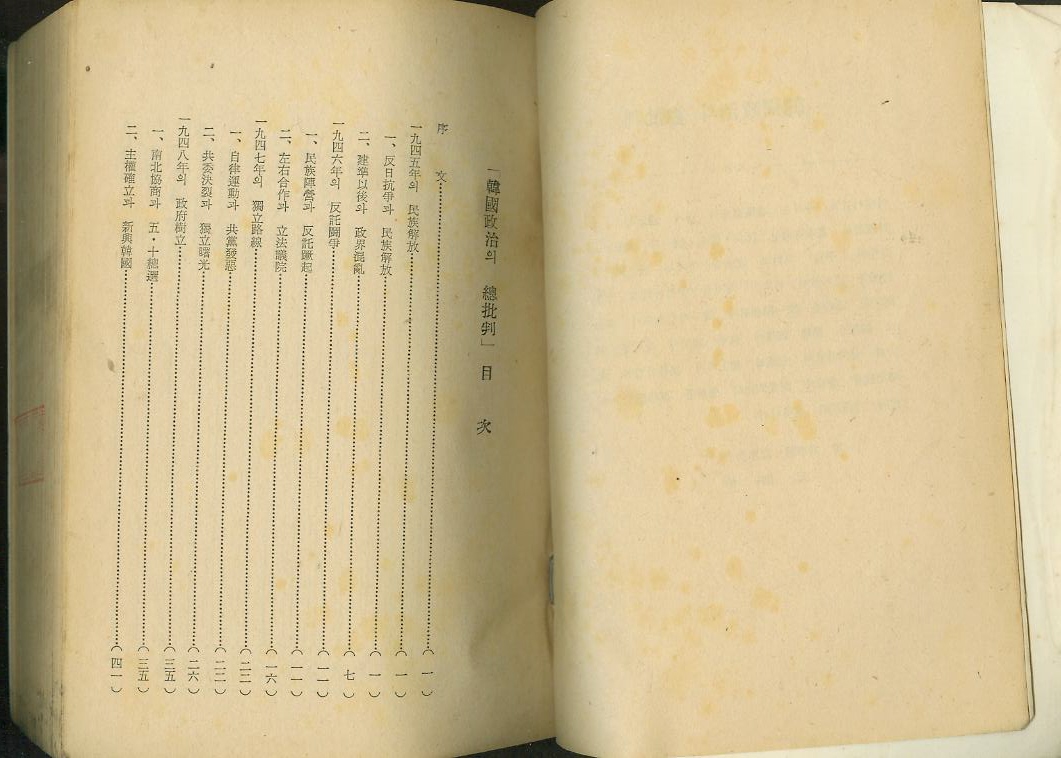 「韓國政治의 總批判」 目 次
序 文……(一)
一九四五年의 民族解放……(一)
一、反日抗爭과 民族解放……(一)
二、建準以後의 政界混亂……(七)
一九四六年의 反託鬪爭……(一一)
一、民族陣營과 反託蹶起……(一一)
二、左右合作과 立法議院……(一六)
一九四七年의 獨立路線……(二二)
一、自律運動과 共黨發惡……(二二)
二、共委決裂과 獨立曙光……(二六)
一九四八年의 政府樹立……(三五)
一、南北協商과 五・十總選……(三五)
二、主權確立과 新興韓國……(四一)